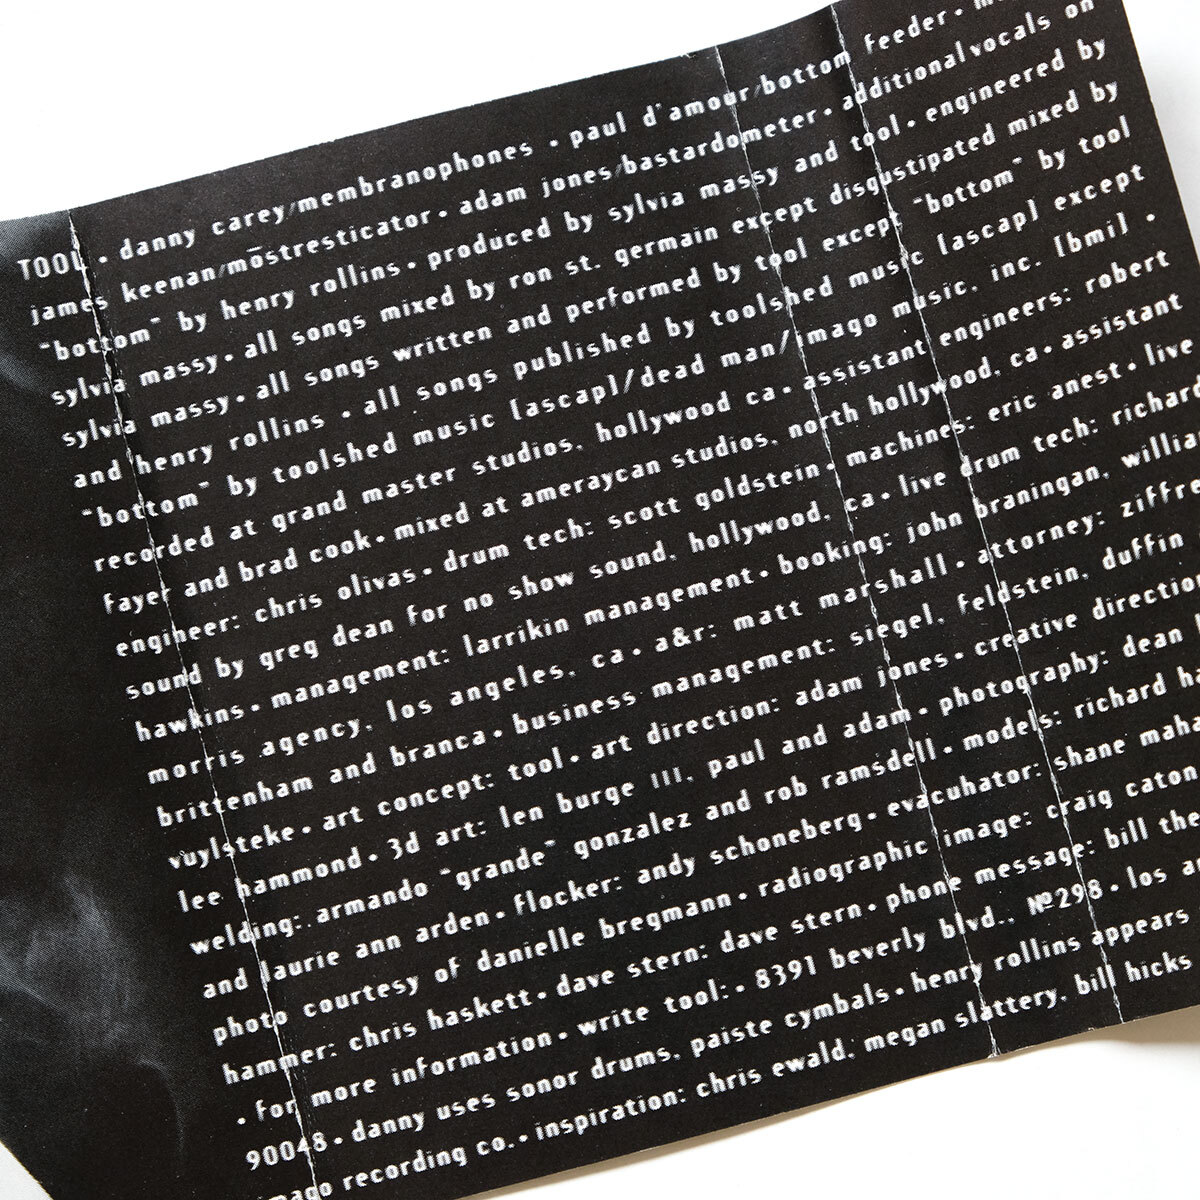 TOOL • danny carey/membranophones • paul d'amour/bottom feeder •
james keenan/mōstresticator • adam jones/bastardometer • additional vocals on
"bottom" by henry rollins • produced by sylvia massy and tool • engineered by
sylvia massy • all songs mixed by ron st. germain except disgustipated mixed by
sylvia massy • all songs written and performed by tool except "bottom" by tool
and henry rollins • all songs published by toolshed music [ascap] except
"bottom" by toolshed music [ascap]/dead man/imago music, inc. [bmi] •
recorded at grand master studios, hollywood ca • assistant engineers: robert
fayer and brad cook • mixed at ameraycan studios, north hollywood, ca • assistant
engineer: chris olivas • drum tech: scott goldstein • machines: eric anest • live
sound by greg dean for no show sound, hollywood, ca • live drum tech: richard
hawkins • management: larrikin management • booking: john braningan, willia
morris agency, los angeles, ca • a&r: matt marshall • attorney: ziffre
brittenham and branca • business management: siegel, feldstein, duffin
vuylsteke • art concept: tool • art direction: adam jones • creative directio
lee hammond • 3d art: len burge III, paul and adam • photography: dean
welding: armando "grande" gonzalez and rob ramsdell • models: richard ha
and laurie ann arden • flocker: andy schoneberg • evacuhator: shane maha
photo courtesy of danielle bregmann • radiographic image: craig caton
hammer: chris haskett • dave stern: dave stern • phone message: bill the
• for more information • write tool: • 8391 beverly blvd., №298 • los a
90048 • danny uses sonor drums, paiste cymbals • henry rollins appears
imago recording co. • inspiration: chris ewald, megan slattery, bill hicks